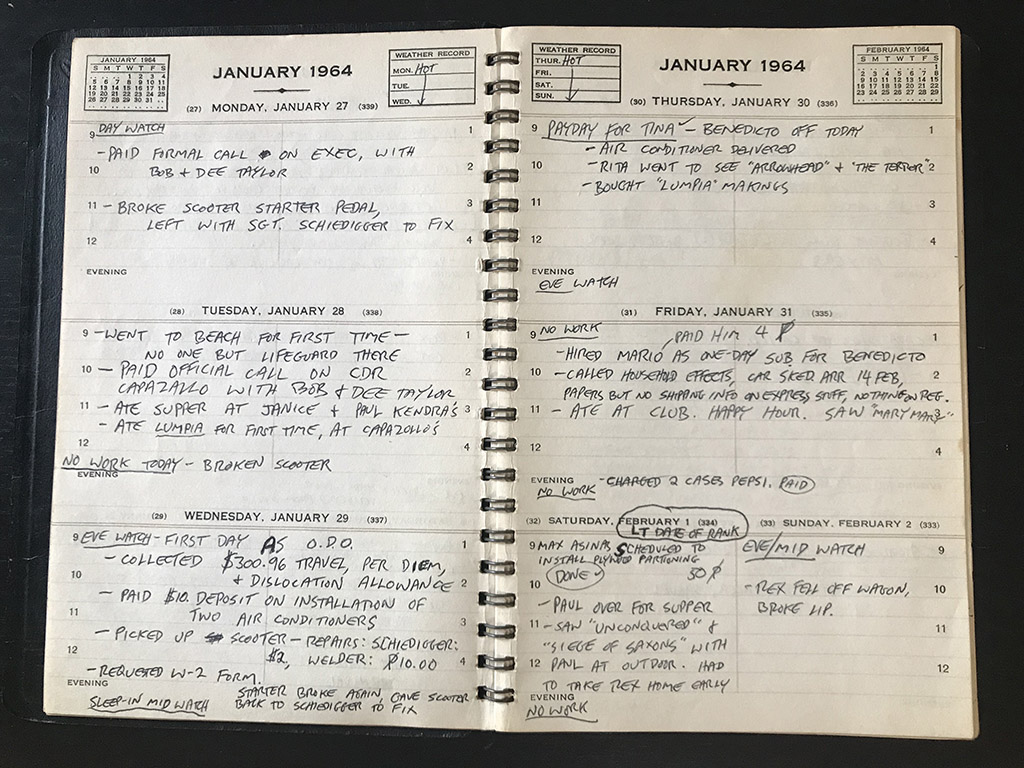 JANUARY 1964
S M T W T F S
1 2 3 4
5 6 7 8 9 10 11
12 13 14 15 16 17 18
19 20 21 22 23 24 25
26 27 28 29 30 31
JANUARY 1964
WEATHER RECORD
MON. HOT
TUE.
WED.
(27) MONDAY, JANUARY 27 (339)
9 DAY WATCH 1
- PAID FORMAL CALL ON EXEC, WITH
10 BOB & DEE TAYLOR 2
11 - BROKE SCOOTER STARTER PEDAL, 3
LEFT WITH SGT. SCHIEDIGGER TO FIX
12 4
EVENING
(28) TUESDAY, JANUARY 28 (338)
9 - WENT TO BEACH FOR FIRST TIME - 1
NO ONE BUT LIFEGUARD THERE
10 - PAID OFFICIAL CALL ON CDR 2
CAPAZALLO WITH BOB & DEE TAYLOR
11 - ATE SUPPER AT JANICE & PAUL KENDRA'S 3
- ATE LUMPIA FOR FIRST TIME, AT CAPAZOLLO'S
12 4
NO WORK TODAY - BROKEN SCOOTER
EVENING
(29) WEDNESDAY, JANUARY 29 (337)
9 EVE WATCH - FIRST DAY AS O.D.O. 1
- COLLECTED $300.96 TRAVEL, PER DIEM,
10 & DISLOCATION ALLOWANCE 2
- PAID $10. DEPOSIT ON INSTALLATION OF
11 TWO AIR CONDITIONERS 3
- PICKED UP SCOOTER - REPAIRS: SCHIEDIGGER:
12 $2, WELDER: ₱10.00 4
- REQUESTED W-2 FORM.
EVENING
STARTER BROKE AGAIN, GAVE SCOOTER
SLEEP-IN MID WATCH BACK TO SCHIEDIGGER TO FIX
WEATHER RECORD
THUR. HOT
FRI.
SAT.
SUN.
JANUARY 1964
FEBRUARY 1964
S M T W T F S
1
2 3 4 5 6 7 8
9 10 11 12 13 14 15
16 17 18 19 20 21 22
23 24 25 26 27 28 29
(30) THURSDAY, JANUARY 30 (336)
9 PAYDAY FOR TINA ✓ - BENEDICTO OFF TODAY 1
- AIR CONDITIONER DELIVERED
10 - RITA WENT TO SEE "ARROWHEAD" & "THE TERROR" 2
- BOUGHT "LUMPIA" MAKINGS
11 3
12 4
EVENING
EVE WATCH
(31) FRIDAY, JANUARY 31 (335)
9 NO WORK PAID HIM 4 ₱ 1
- HIRED MARIO AS ONE-DAY SUB FOR BENEDICTO
10 - CALLED HOUSEHOLD EFFECTS, CAR SKED ARR 14 FEB, 2
PAPERS BUT NO SHIPPING INFO ON EXPRESS STUFF, NOTHING ON REF.
11 - ATE AT CLUB. HAPPY HOUR. SAW "MARY MARY" 3
12 4
EVENING - CHARGED 2 CASES PEPSI. PAID
NO WORK
(32) SATURDAY, FEBRUARY 1 (334)
LT DATE OF RANK
9 MAX ASINAS SCHEDULED TO
INSTALL PLYWOOD PARTIONING
10 DONE ✓ 50 ₱
- PAUL OVER FOR SUPPER
11 - SAW "UNCONQUERED" &
"SIEGE OF SAXONS" WITH
12 PAUL AT OUTDOOR. HAD
TO TAKE REX HOME EARLY
EVENING
NO WORK
(33) SUNDAY, FEBRUARY 2 (333)
EVE/MID WATCH 9
- REX FELL OFF WAGON, 10
BROKE LIP.
11
12